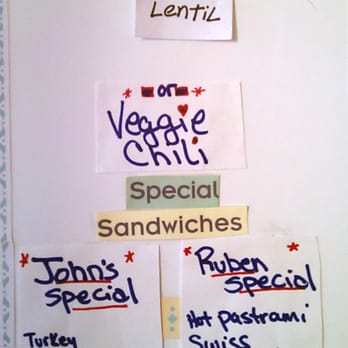 Lentil
* - or - *
Veggie
Chili
Special
Sandwiches
* John's *
Special
Turkey
* Ruben *
Special
Hot pastrami
Swiss